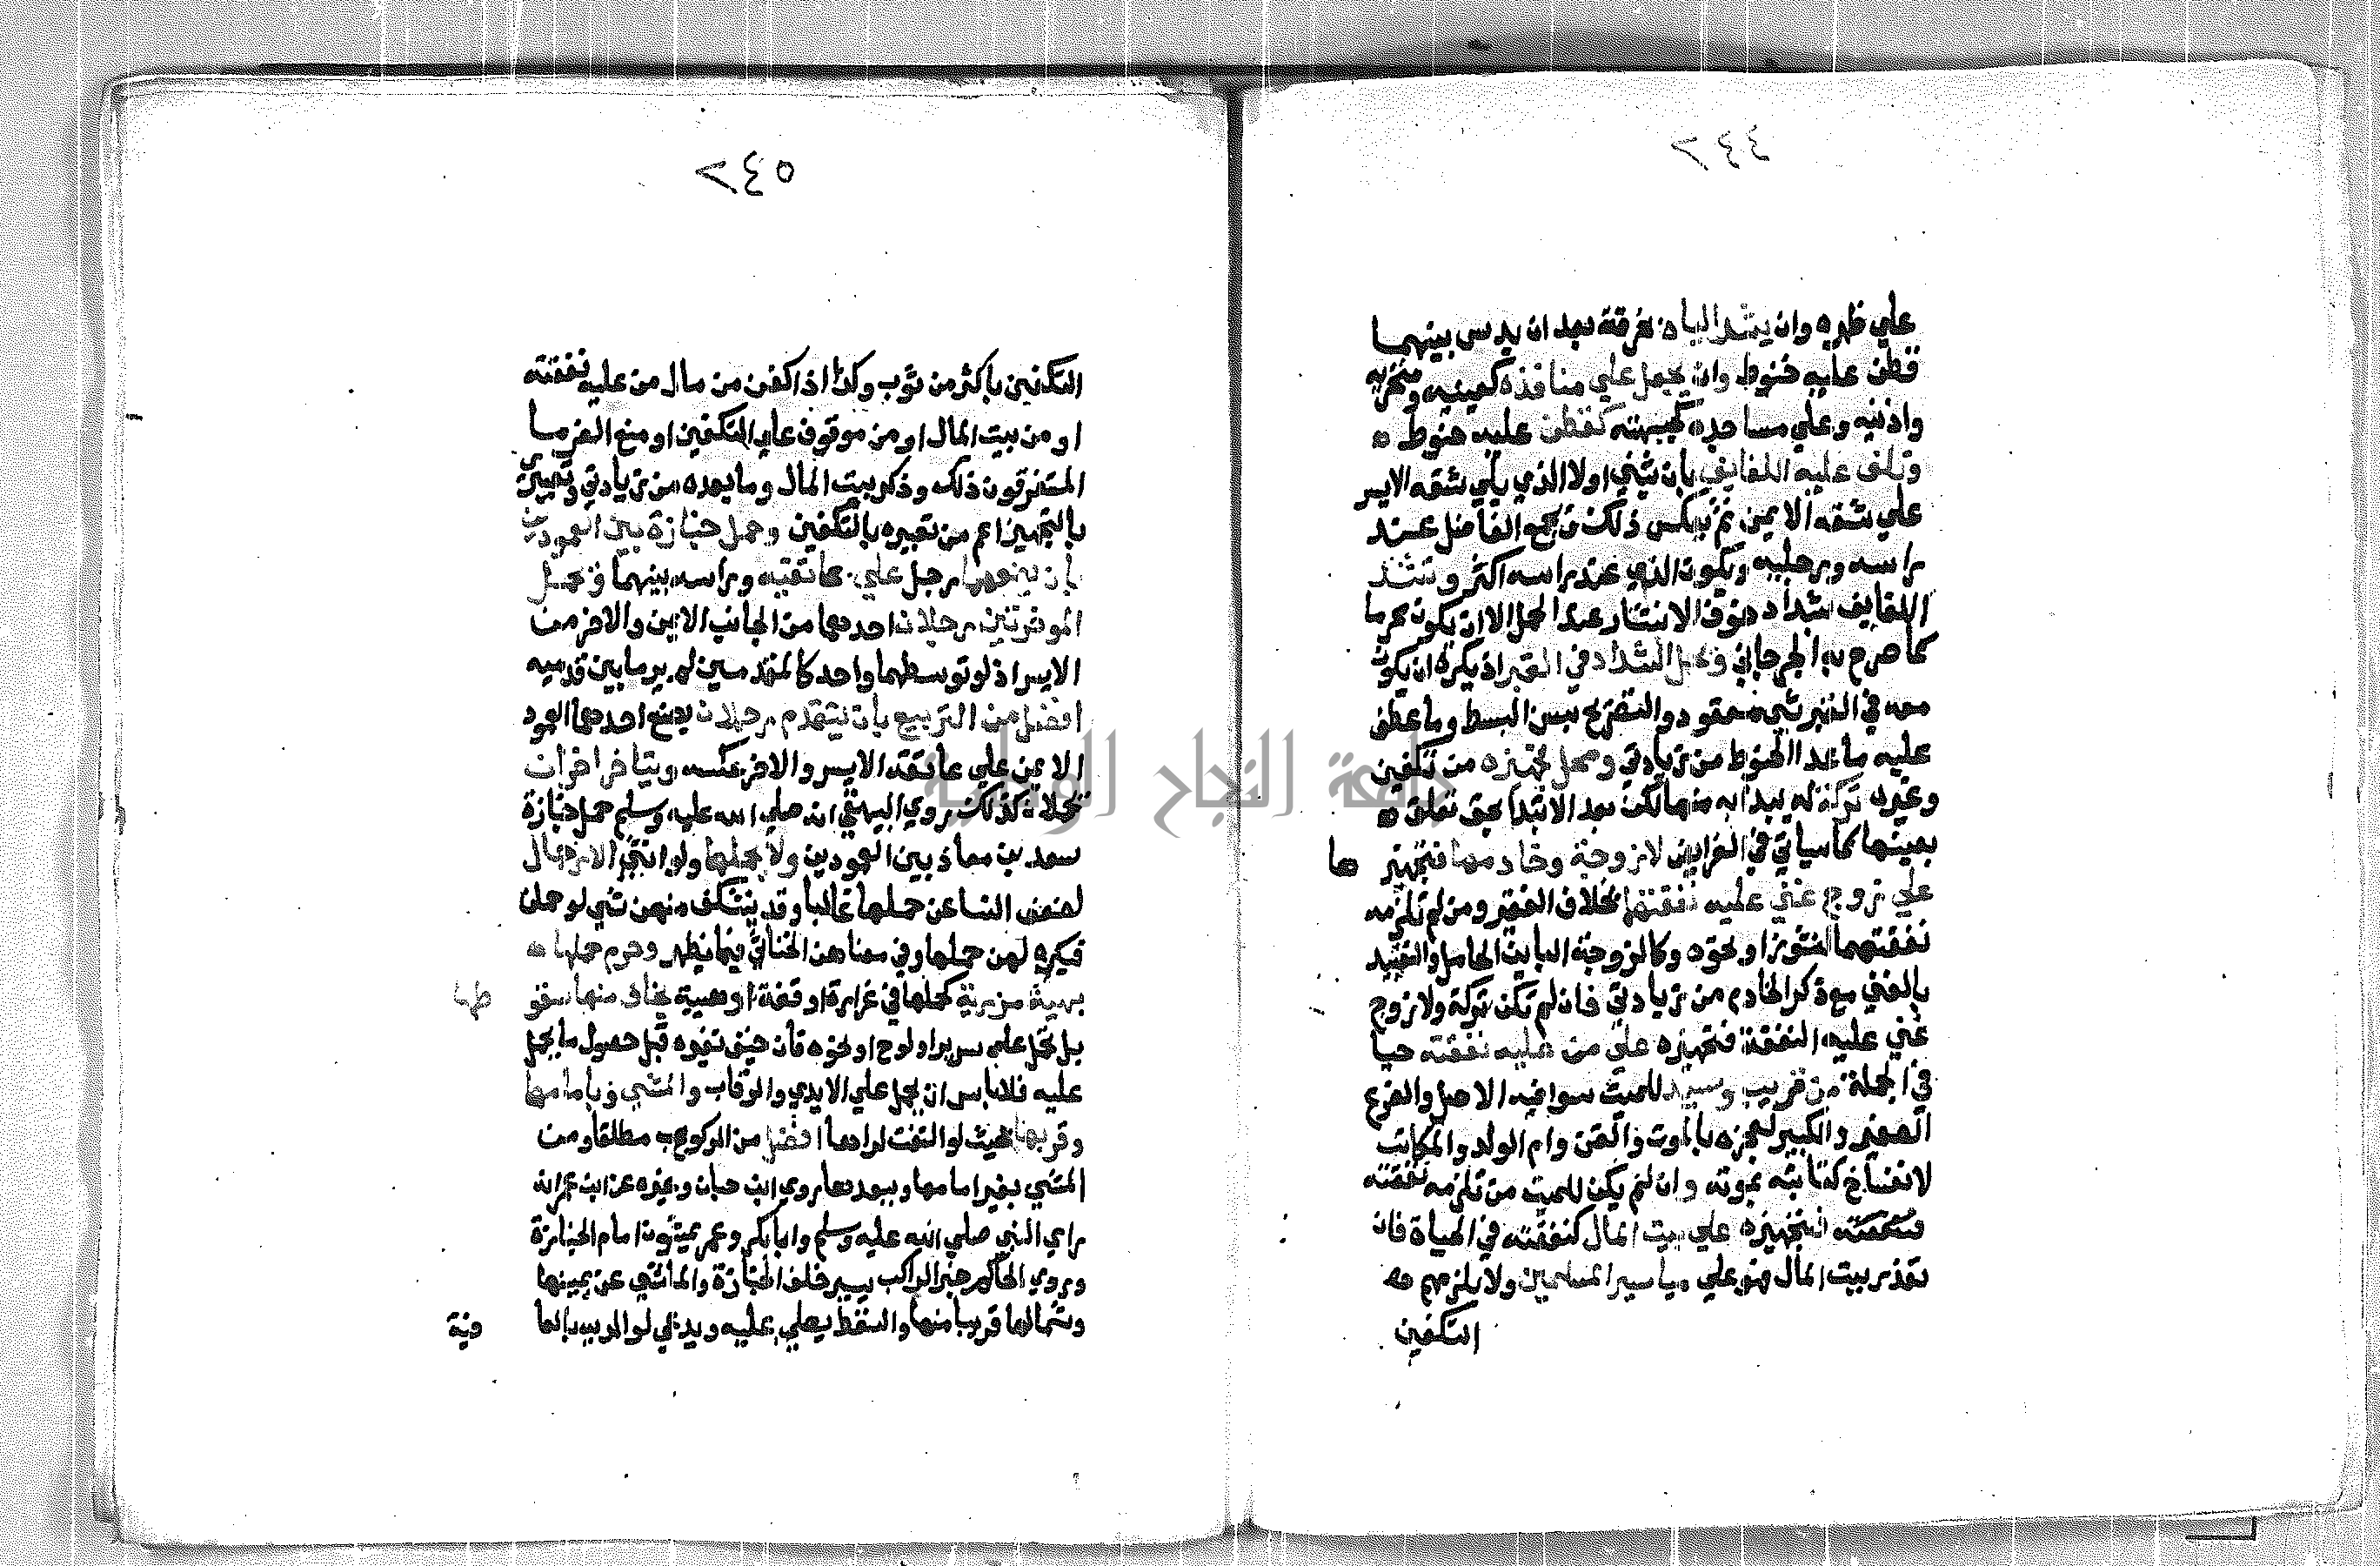 ٢٤٤
علي ظهره وان يشد الياه بخرقة بعد ان يدس بينهما
قطن عليه حنوط وان يجعل علي منافذه كعينيه ومنخريه
واذنيه وعلي مساجده كجبهته كقطن عليه حنوط ه
وتلف عليه اللفايف بان يثني اولا الذي يلي شقه الايسر
علي شقه الايمن ثم يعكس ذلك ثم يجمع الفاضل عند
راسه ورجليه ويكون الذي عند راسه اكثر وتشد
اللفايف بشداد خوف الانتشار عند الحمل الا ان يكون محرما
كما صرح به الجرجاني ويحل الشداد في القبر اذ يكره ان يكون
معه في القبر شي معقود والتصريح بسن البسط وما عطف
عليه ما عدا الحنوط من زيادتي ومحل تجهيزه من تكفين
وغيره تركة له يبدا به منها لكن بعد الابتدا بحق تعلق ه
بعينها كما سياتي في الفرايض لا زوجة وخادمها فتجهيز
ها
علي زوج غني عليه نفقتها بخلاف الفقير ومن لم تلزمه
نفقتهما لنشوز او نحوه وكالزوجة الباين الحامل والتقييد
بالغني مع ذكر الخادم من زيادتي فان لم تكن تركة ولا زوج
غني عليه النفقة فتجهيزه علي من عليه نفقته حيا
في الجملة من قريب وسيد للميت سوا فيه الاصل والفرع
الصغير والكبير لعجزه بالموت والقن وام الولد والمكاتب
لانفساخ كتابته بموته وان لم يكن للميت من تلزمه نفقته
فتجهيزه علي بيت المال كنفقته في الحياة فان
تعذر بيت المال فهو علي مياسير المسلمين ولا يلزمهم ه
التكفين
٢٤٥
التكفين باكثر من ثوب وكذا اذا كفن من مال من عليه نفقته
او من بيت المال او من موقوف علي التكفين او منع الغرما
المستغرقون ذلك وذكر بيت المال وما بعده من زيادتي وتعبيري
بالتجهيز اعم من تعبيره بالتكفين وحمل جنازة بين العمودين
بان يضعهما رجل علي عاتقيه وراسه بينهما ويحمل
الموخرتين رجلان احدهما من الجانب الايمن والاخر من
الايسر اذ لو توسطهما واحد كالمقدمين لم ير ما بين قدميه
افضل من التربيع بان يتقدم رجلان يضع احدهما العمود
الايمن علي عاتقه الايسر والاخر عكسه ويتاخر اخران
يحملان كذلك روي البيهقي انه صلي الله عليه وسلم حمل جنازة
سعد بن معاذ بين العمودين ولا يحملها ولو انثي الا رجال
لضعف النسا عن حملها غالبا وقد ينكشف منهن شي لو حملن
فيكره لهن حملها وفي معناهن الخناثي فيما يظهر وحرم حملها ه
بهيئة مزرية كحملها في غرارة او قفة او هيئة يخاف منها سقو
طها
بل تحمل علي سرير او لوح او نحوه فان خيف تغيره قبل حصول ما يحمل
عليه فلا باس ان يحمل علي الايدي والرقاب والمشي وبامامها
وقربها بحيث لو التفت لراها افضل من الركوب مطلقا ومن
المشي بغير امامها وببعدها روي ابن حبان وغيره عن ابن عمر انه
راي النبي صلي الله عليه وسلم وابا بكر وعمر يمشون امام الجنازة
وروي الحاكم خبر الراكب يسير خلف الجنازة والماشي عن يمينها
وشمالها قريبا منها والسقط يصلي عليه ويدعي لوالديه بالعا
فية
جامعة النجاح الوطنية